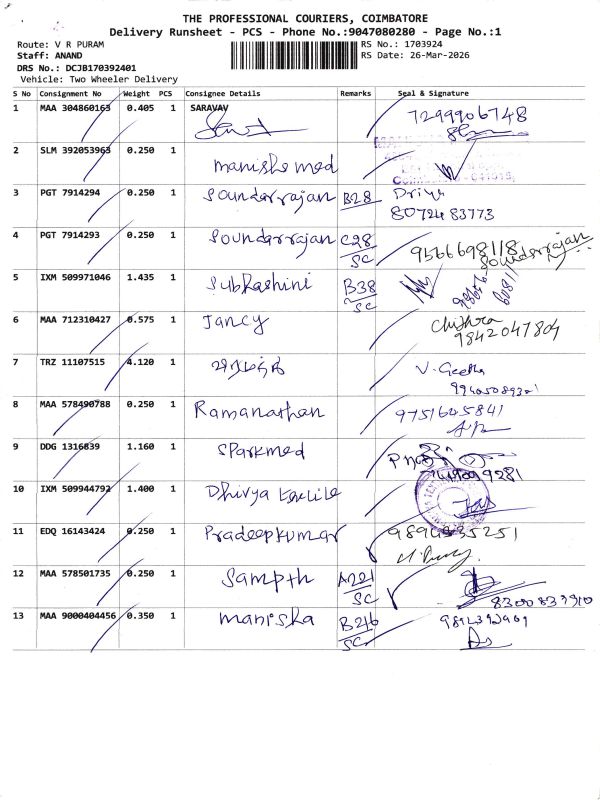 THE PROFESSIONAL COURIERS, COIMBATORE
Delivery Runsheet - PCS - Phone No.:9047080280 - Page No.:1
Route: V R PURAM RS No.: 1703924
Staff: ANAND RS Date: 26-Mar-2026
DRS No.: DCJB170392401
Vehicle: Two Wheeler Delivery
S No Consignment No Weight PCS Consignee Details Remarks Seal & Signature
1 MAA 304860163 0.405 1 SARAVAV 7299906748
2 SLM 392053963 0.250 1 manishe med
3 PGT 7914294 0.250 1 Sounderrajan B28 Driya
80724 83773
4 PGT 7914293 0.250 1 Sounderrajan C28 9566698118
SC Sounderrajan
5 IXM 509971046 1.435 1 Subhashini B38
SC
6 MAA 712310427 0.575 1 Jancy Chithra
9842047804
7 TRZ 11107515 4.120 1 V. Geetha
8 MAA 578490788 0.250 1 Ramanathan 9751645841
9 DDG 1316839 1.160 1 Sparkmed
10 IXM 509944792 1.400 1 Dhivya textile
11 EDQ 16143424 0.250 1 Pradeepkumar
12 MAA 578501735 0.250 1 Sampth A221
SC 8300833910
13 MAA 9000404456 0.350 1 manisha B246
SC